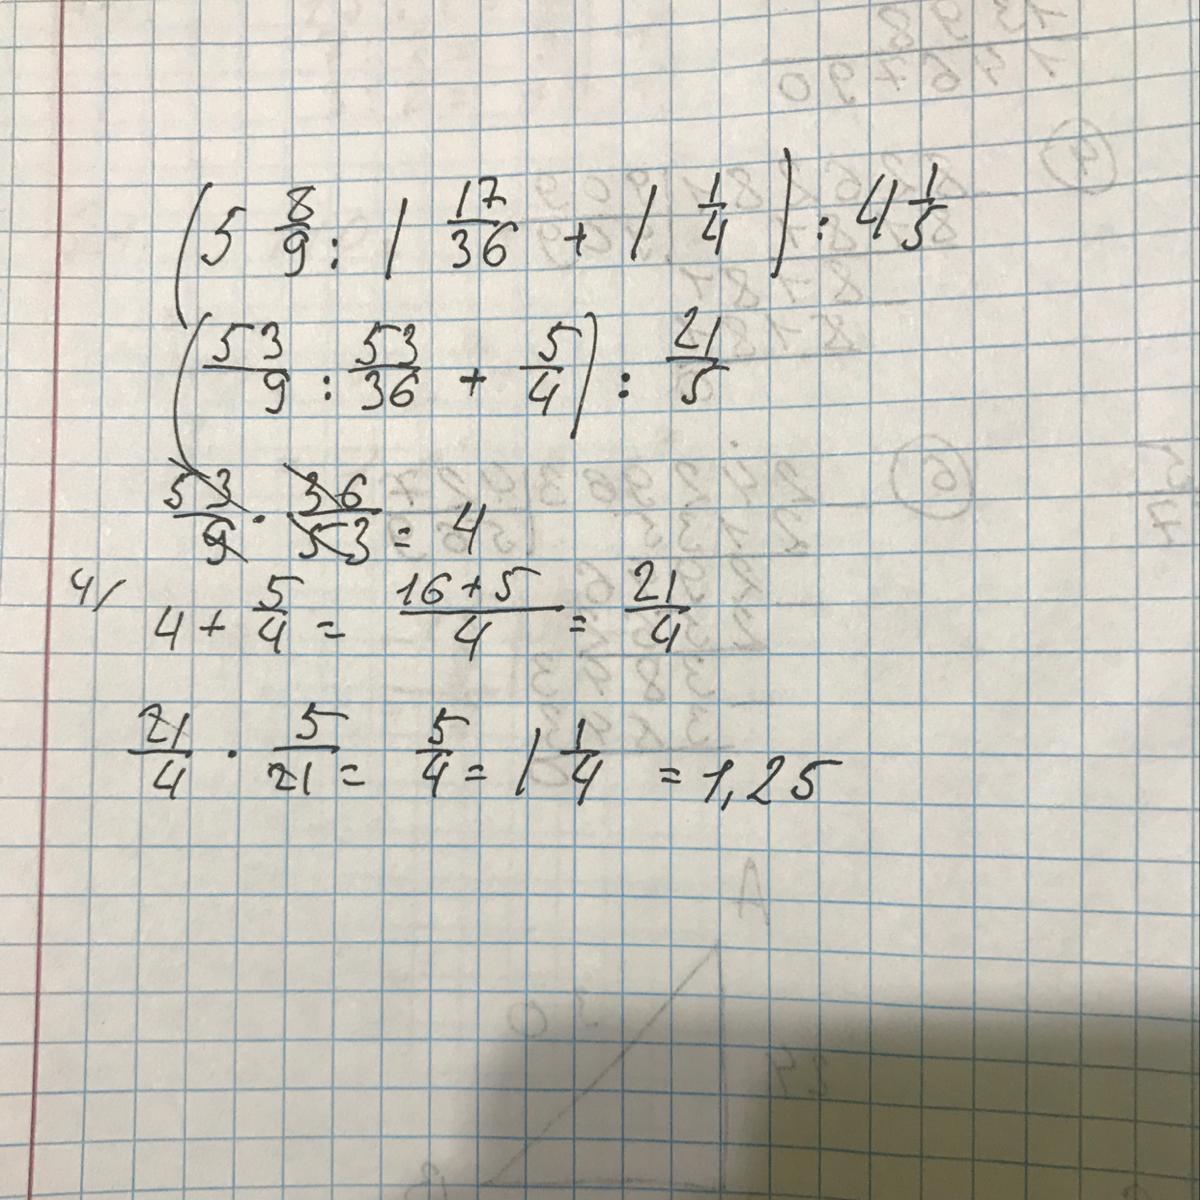 (5 8/9 : 1 17/36 + 1 1/4) : 4 1/5
(53/9 : 53/36 + 5/4) : 21/5
53/9 · 36/53 = 4
4/ 4 + 5/4 = 16+5/4 = 21/4
21/4 · 5/21 = 5/4 = 1 1/4 = 1,25